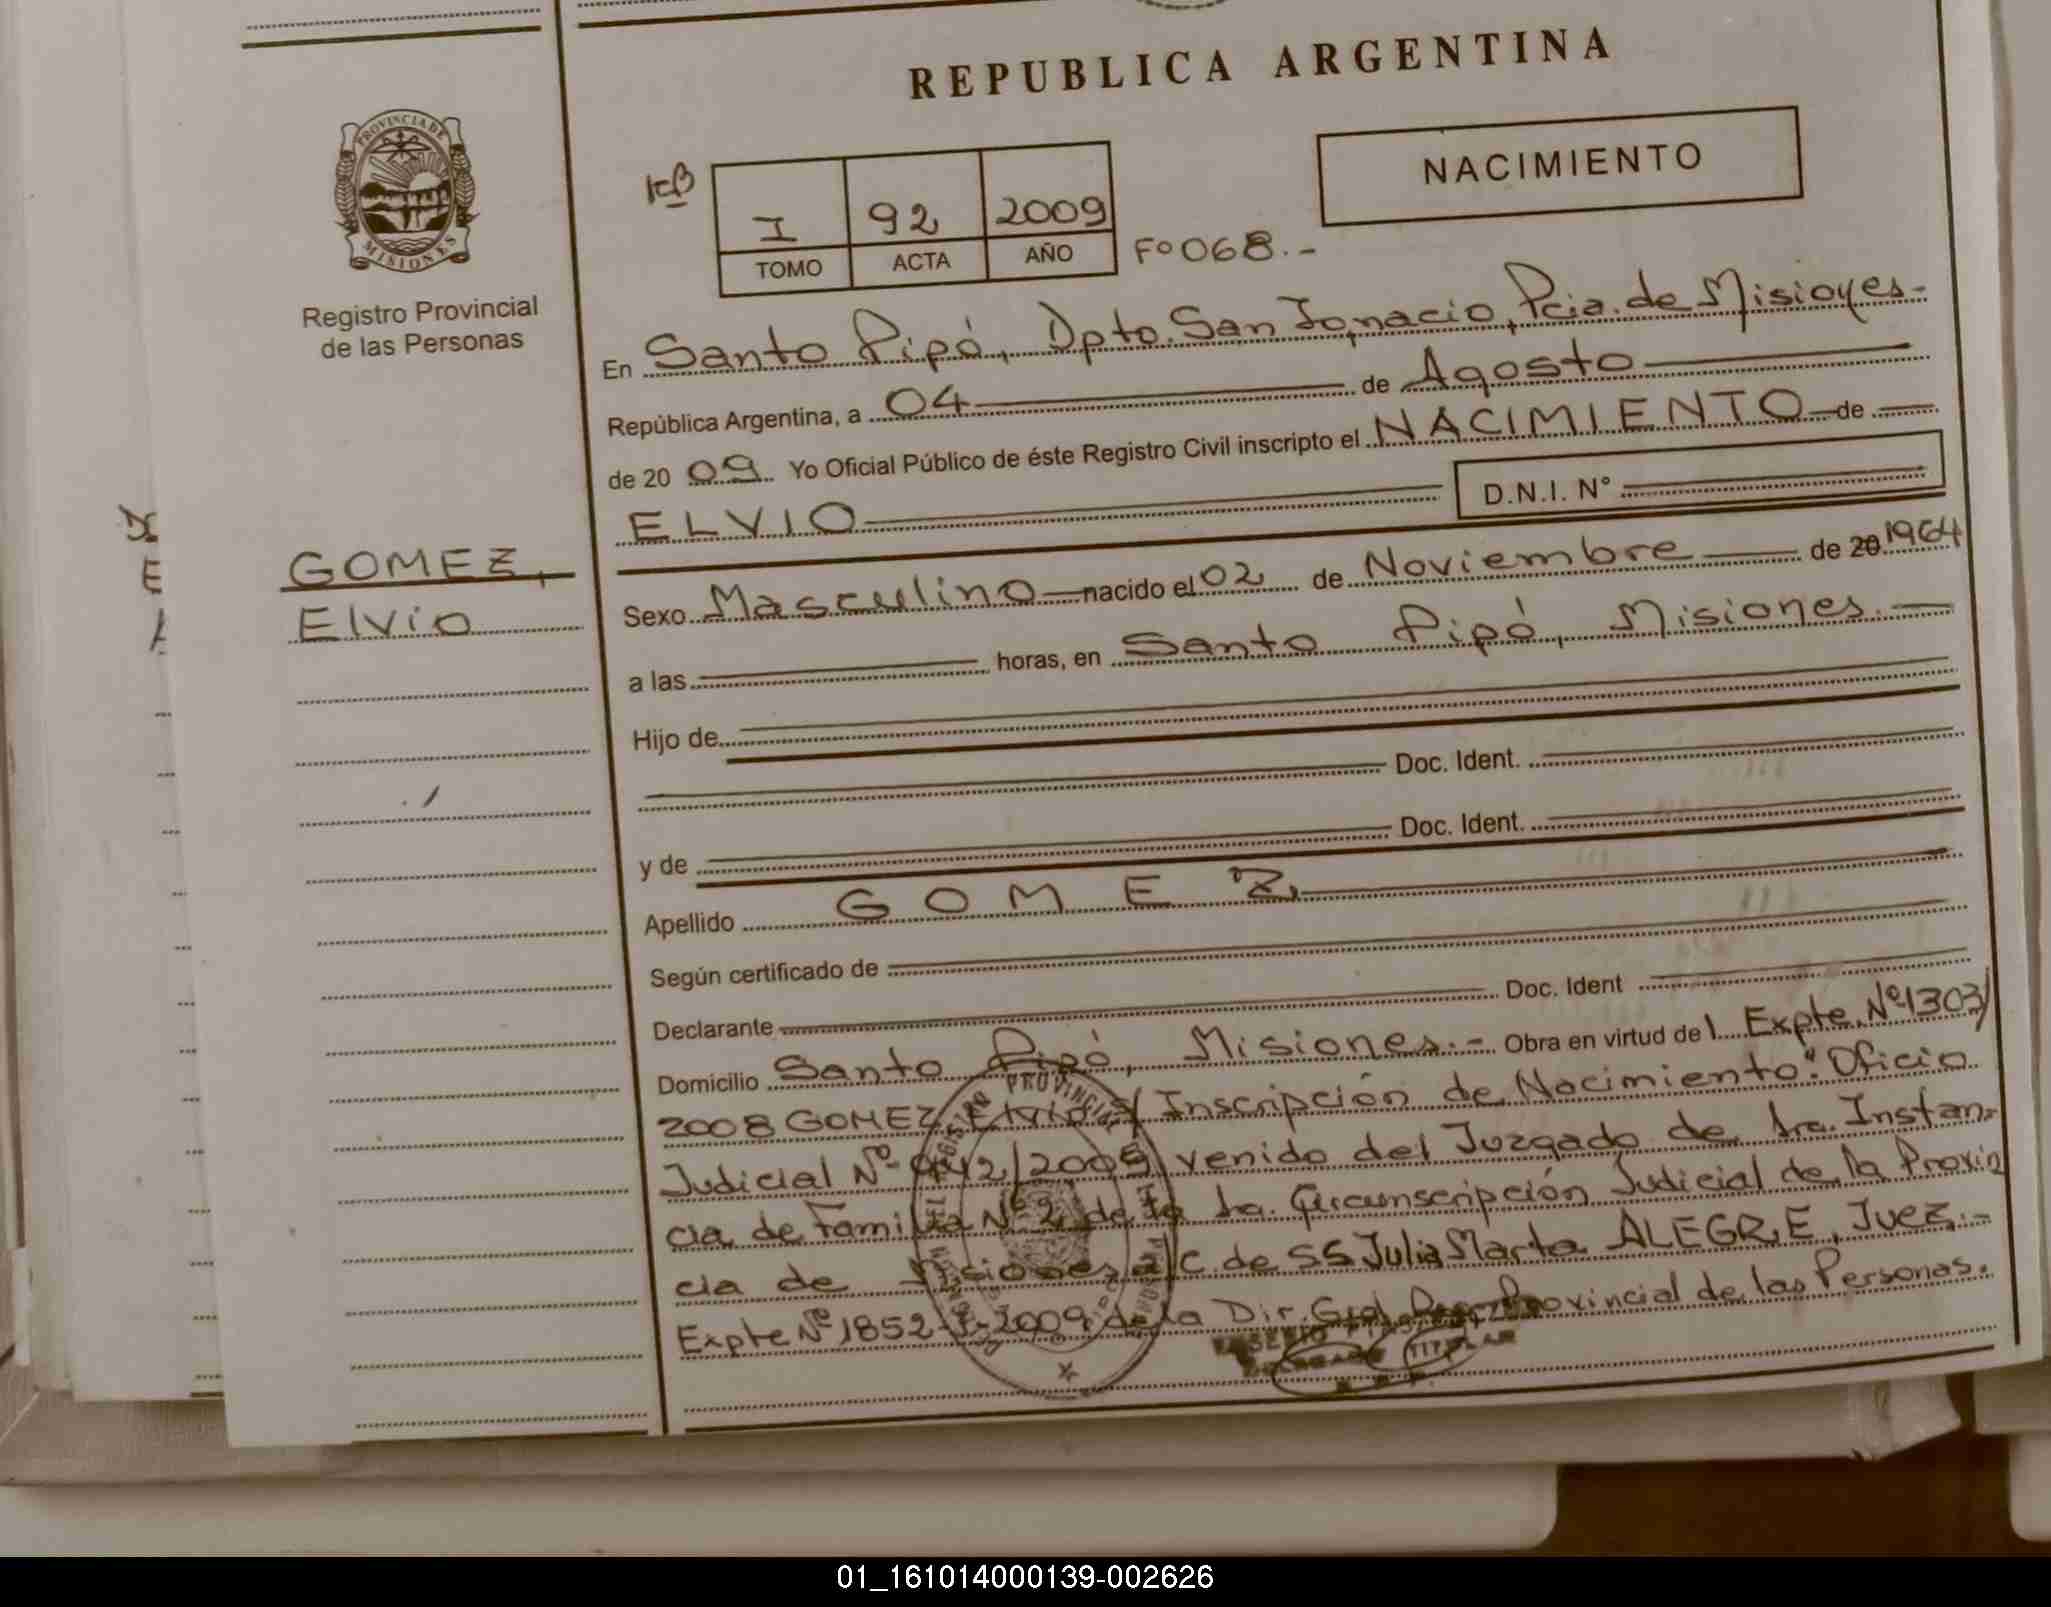 REPUBLICA ARGENTINA
PROVINCIA DE
MISIONES
Registro Provincial
de las Personas
NACIMIENTO
I 92 2009
TOMO ACTA AÑO
Fº 068.-
En Santo Pipó, Dpto. San Ignacio, Pcia. de Misiones-
República Argentina, a 04 de Agosto
de 20 09 Yo Oficial Público de éste Registro Civil inscripto el NACIMIENTO de
ELVIO D.N.I. N°
GOMEZ,
Elvio
Sexo Masculino nacido el 02 de Noviembre de 20 1964
a las horas, en Santo Pipó, Misiones.-
Hijo de
Doc. Ident.
y de Doc. Ident.
Apellido GOMEZ
Según certificado de
Declarante Doc. Ident
Domicilio Santo Pipó, Misiones.- Obra en virtud del Expte. Nº 1303/
2008 GOMEZ Elvio s/ Inscripción de Nacimiento". Oficio
Judicial Nº venido del Juzgado de 1ra. Instan-
cia de Familia Nº 2 de la 1ra. Circunscripción Judicial de la Provin
cia de Misiones a/c. de SS Julia Marta ALEGRE, Juez.-
Expte Nº 1852 2009 de la Dir. Gral Provincial de las Personas.
TITULAR
01_161014000139-002626